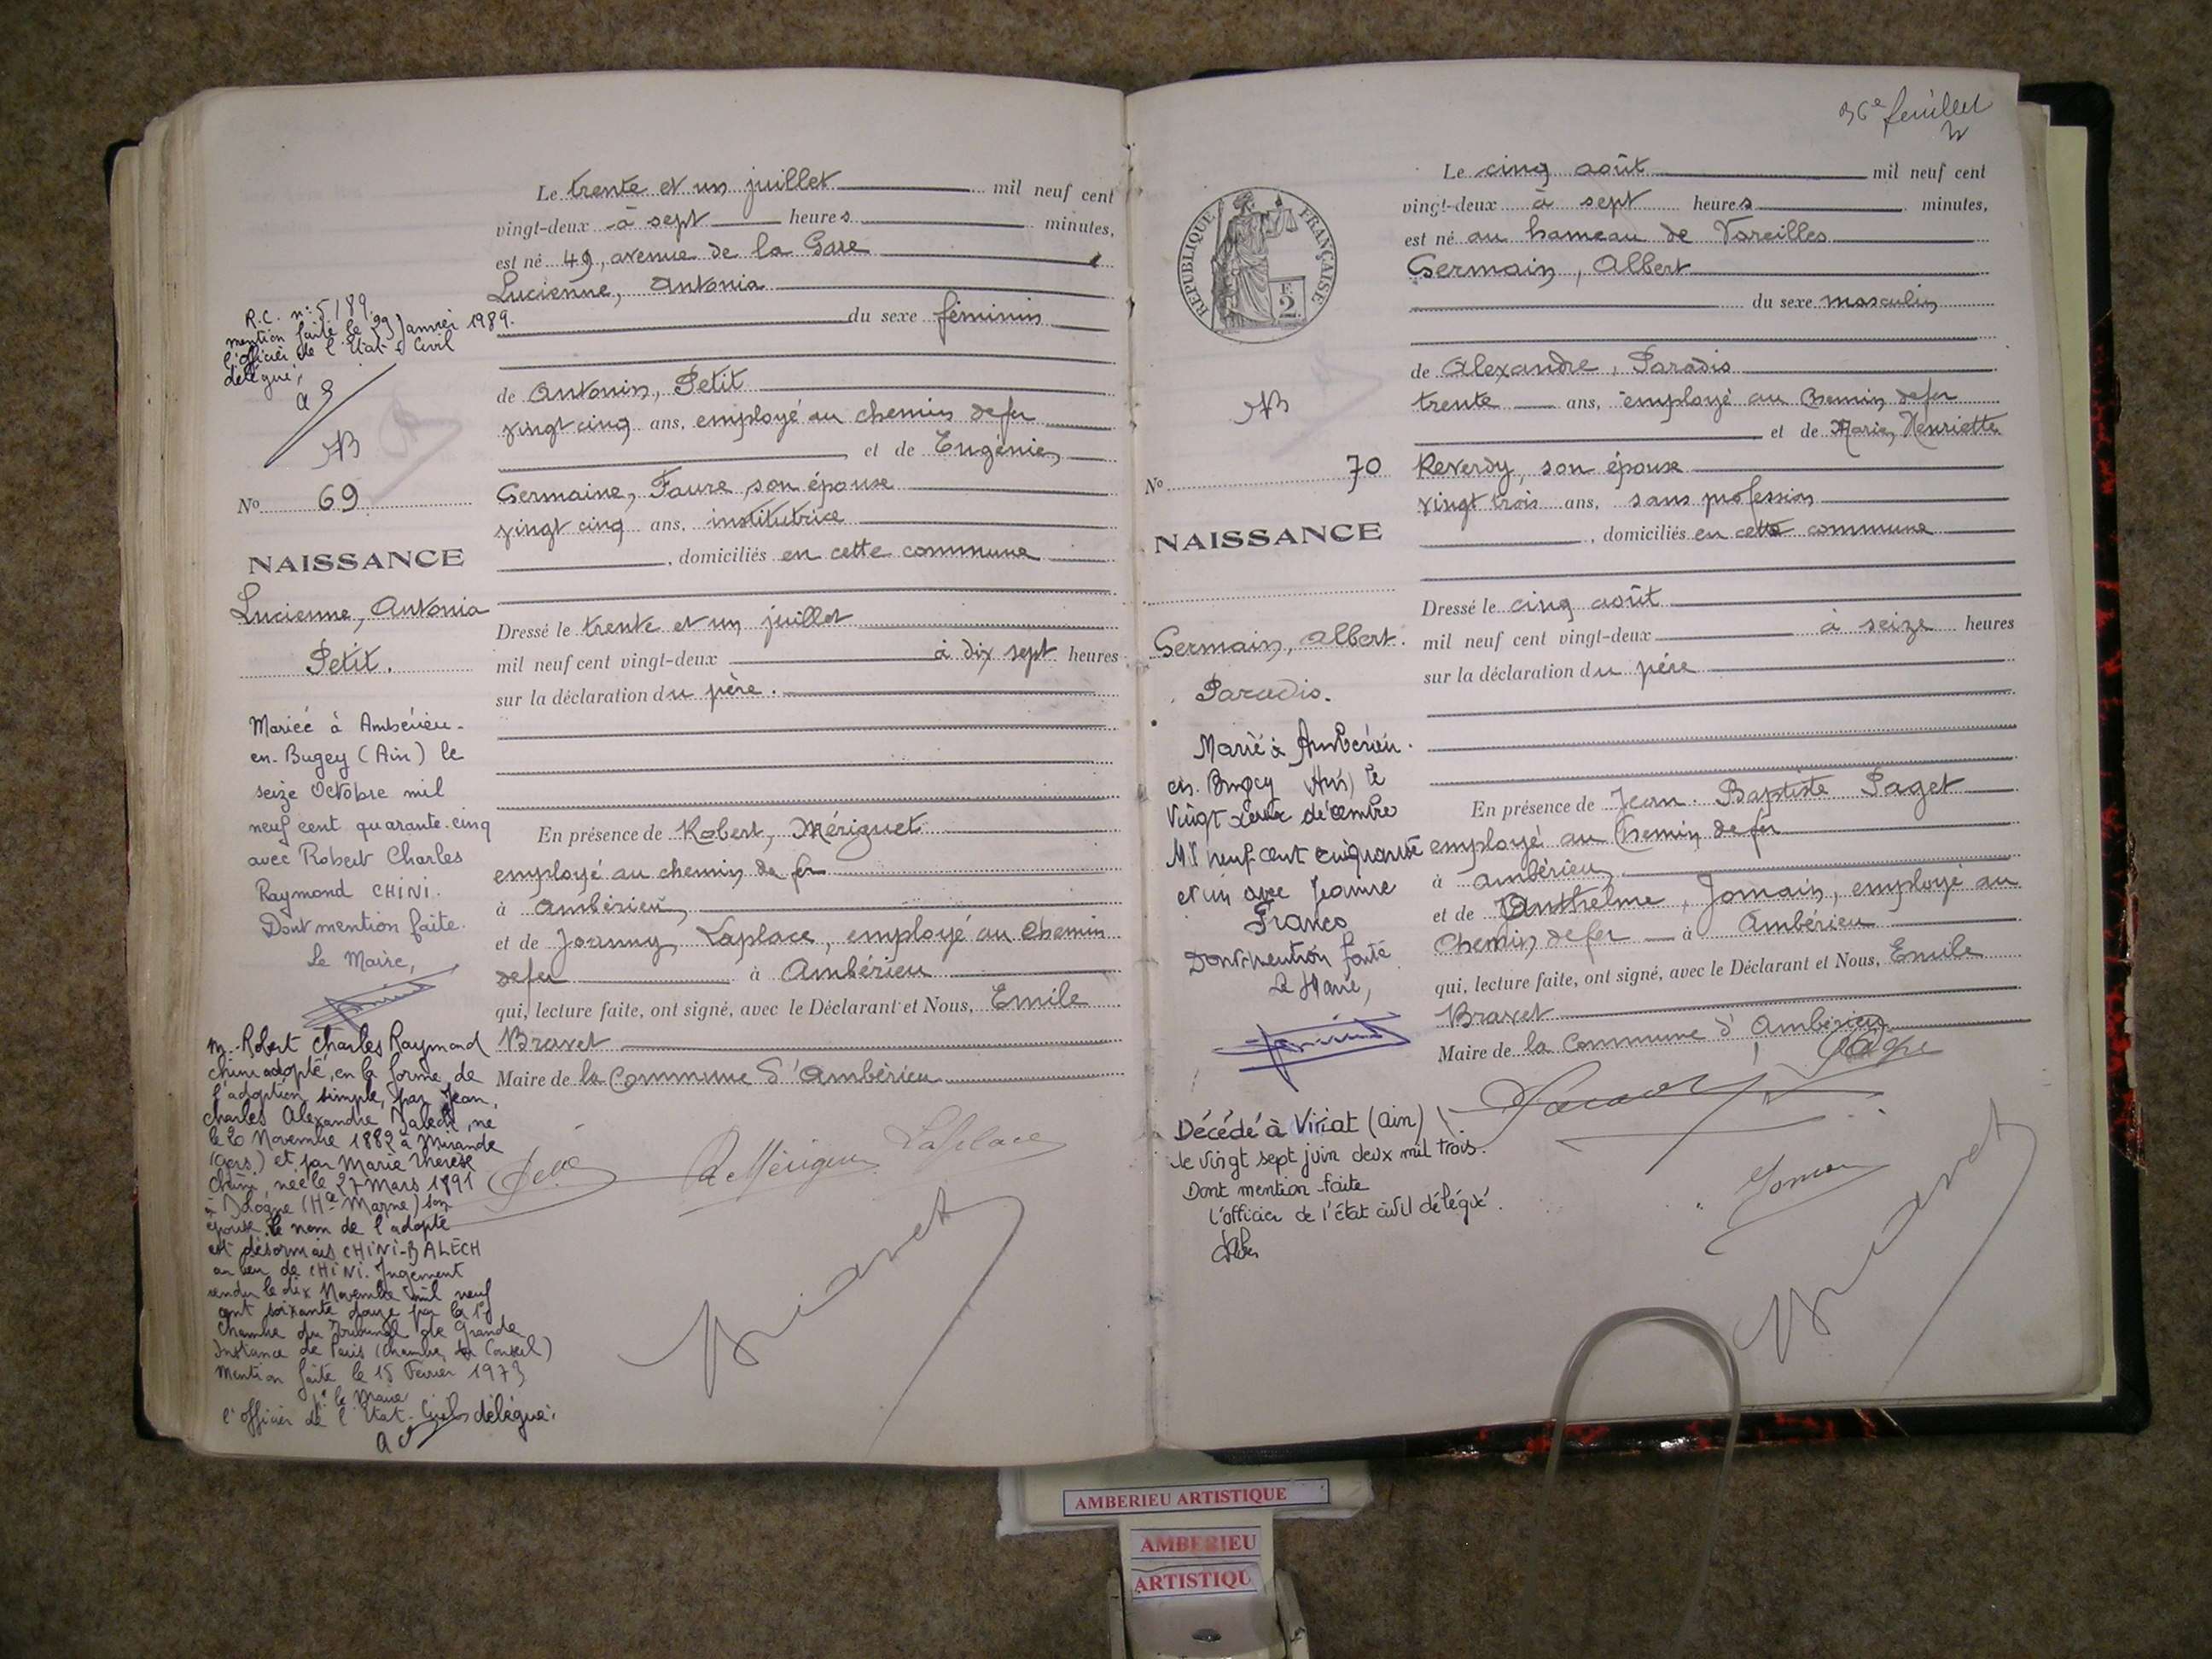 Le trente et un juillet mil neuf cent
vingt-deux à sept heures minutes,
est né 49, avenue de la Gare
Lucienne, Antonia
du sexe féminin
de Antonin, Petit
vingt cinq ans, employé au chemin de fer
et de Eugénie,
Germaine, Faure, son épouse
vingt cinq ans, institutrice
, domiciliés en cette commune
Dressé le trente et un juillet
mil neuf cent vingt-deux à dix sept heures
sur la déclaration du père.
En présence de Robert, Mériguet
employé au chemin de fer
à Ambérieu,
et de Joanny, Laplace, employé au Chemin
de fer à Ambérieu
qui, lecture faite, ont signé, avec le Déclarant et Nous, Emile
Bravet
Maire de la Commune d'Ambérieu
Laplace
Bravet
R.C. n° 5/89.
mention faite le 23 Janvier 1989.
l'officier de l'Etat-Civil
délégué,
No 69
NAISSANCE
Lucienne, Antonia
Petit.
Mariée à Ambérieu-
en-Bugey (Ain) le
seize Octobre mil
neuf cent quarante-cinq
avec Robert Charles
Raymond CHINI.
Dont mention faite.
Le Maire,
M. Robert Charles Raymond
Chini adopté, en la forme de
l'adoption simple, par Jean,
Charles Alexandre Balech, né
le 20 Novembre 1882 à Mirande
(Gers) et par Marie Thérèse
Chini, née le 27 Mars 1891
à Bologne (Hte Marne) son
épouse. le nom de l'adopté
est désormais CHINI-BALECH
au lieu de CHINI. Jugement
rendu le dix Novembre mil neuf
cent soixante douze par la 1e
Chambre du Tribunal de Grande
Instance de Paris (Chambre du Conseil)
Mention faite le 15 Février 1973
Pr le Maire
l'officier de l'Etat-Civil délégué.
36e feuillet
Le cinq août mil neuf cent
vingt-deux à sept heures minutes,
est né au hameau de Vareilles
Germain, Albert
du sexe masculin
de Alexandre, Paradis
trente ans, employé au Chemin de fer
et de Marie, Henriette
Reverdy, son épouse
vingt trois ans, sans profession
, domiciliés en cette commune
Dressé le cinq août
mil neuf cent vingt-deux à seize heures
sur la déclaration du père
En présence de Jean-Baptiste Paget
employé au Chemin de fer
à Ambérieu,
et de Anthelme, Jomain, employé au
Chemin de fer à Ambérieu
qui, lecture faite, ont signé, avec le Déclarant et Nous, Emile
Bravet
Maire de la Commune d'Ambérieu
Bravet
REPUBLIQUE FRANÇAISE
F.
2.
No 70
NAISSANCE
Germain, Albert.
Paradis.
Marié à Ambérieu-
en-Bugey (Ain) le
Vingt deux décembre
Mil neuf cent cinquante
et un avec Jeanne
Franco
Dont mention faite
Le Maire,
Décédé à Viriat (Ain)
le vingt sept juin deux mil trois.
Dont mention faite
l'officier de l'état civil délégué.
AMBERIEU ARTISTIQUE
AMBERIEU
ARTISTIQU